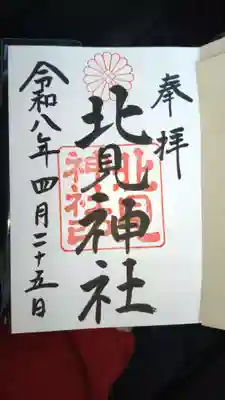 奉拝
北見神社
北見神社印
令和八年四月二十五日